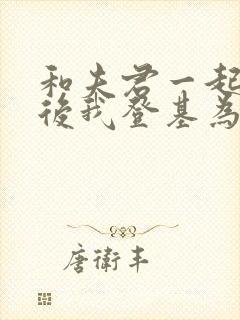 和夫君一起
後我登基為
唐衛丰